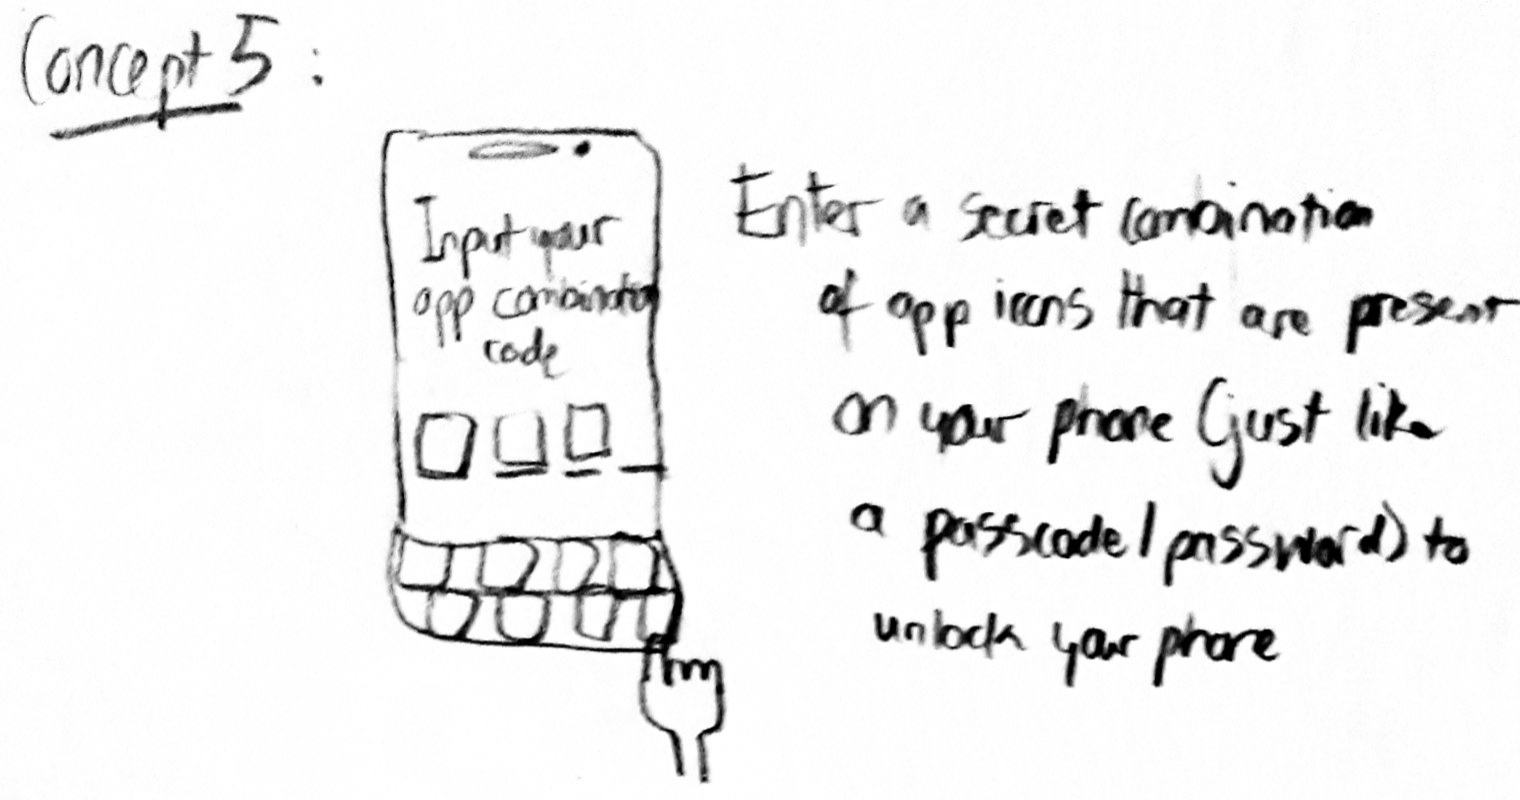 Concept 5:
Input your
app combination
code
Enter a secret combination
of app icons that are present
on your phone (just like
a passcode/password) to
unlock your phone